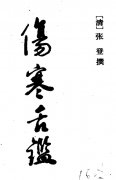 [清]张登撰
傷寒舌鑑